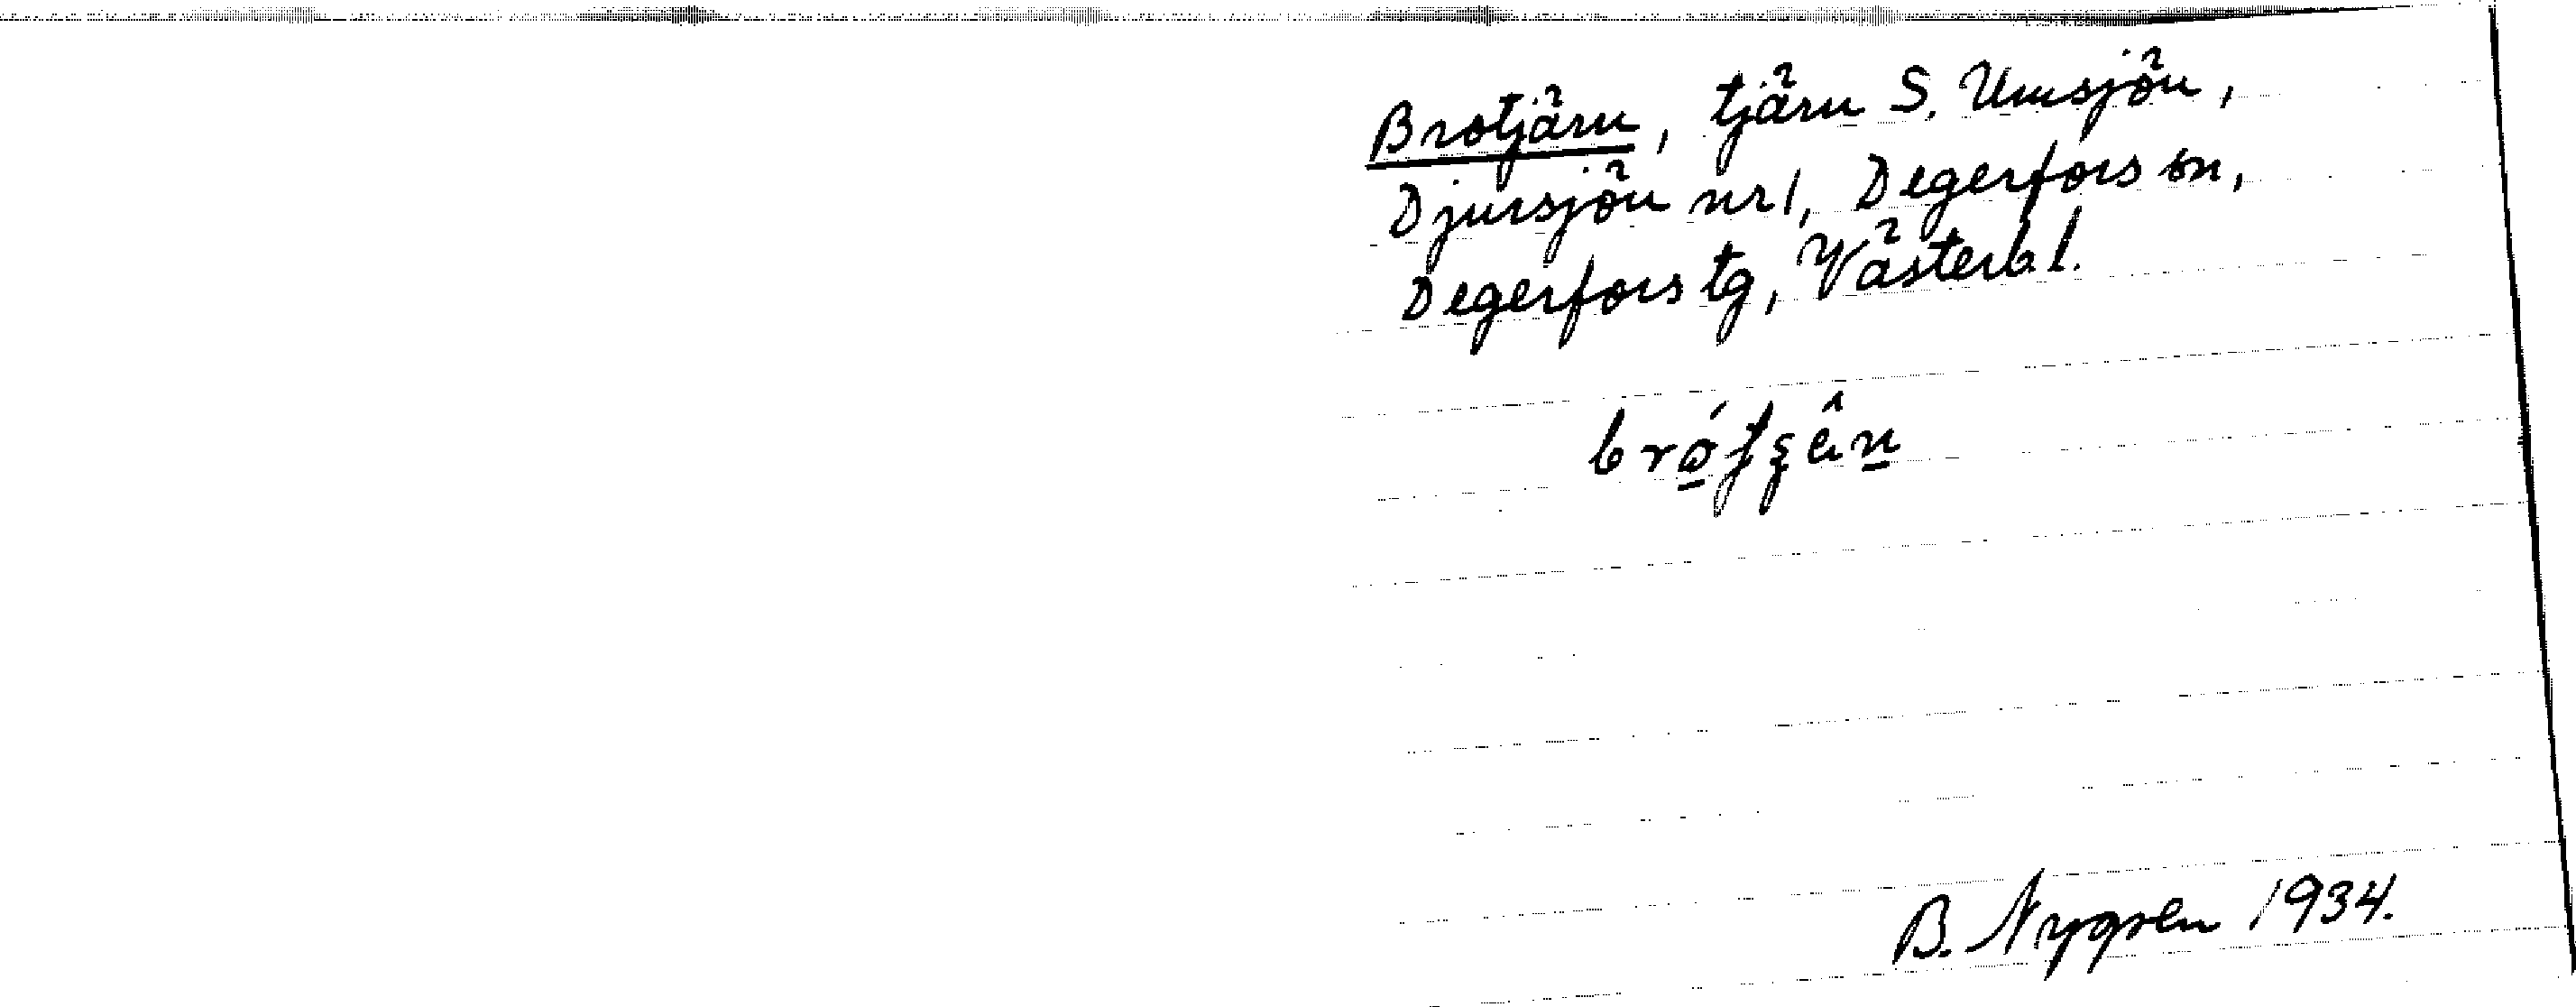 Brotjärn, tjärn S. Umsjön,
Djursjön nr 1, Degerfors sn,
Degerfors tg, Västerb. l.
B. Nygren 1934.